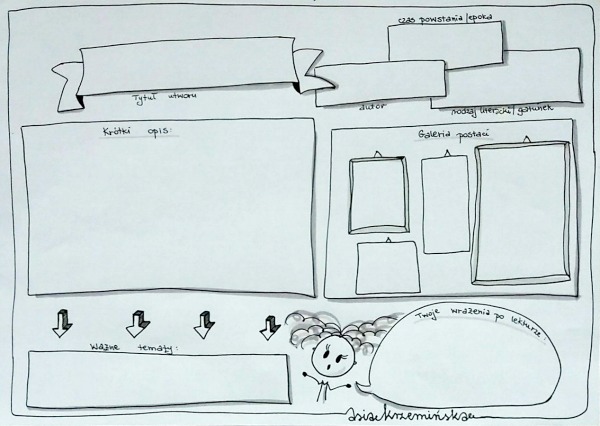 czas powstania/epoka
Tytuł utworu
autor
rodzaj literacki/gatunek
Krótki opis:
Galeria postaci
Ważne tematy:
Twoje wrażenia po lekturze:
asiaekrzemińskae